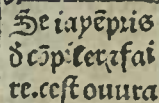 Se iay ēpris
d̄ cōp̄ilerꝫfai
re.ceſt ouura